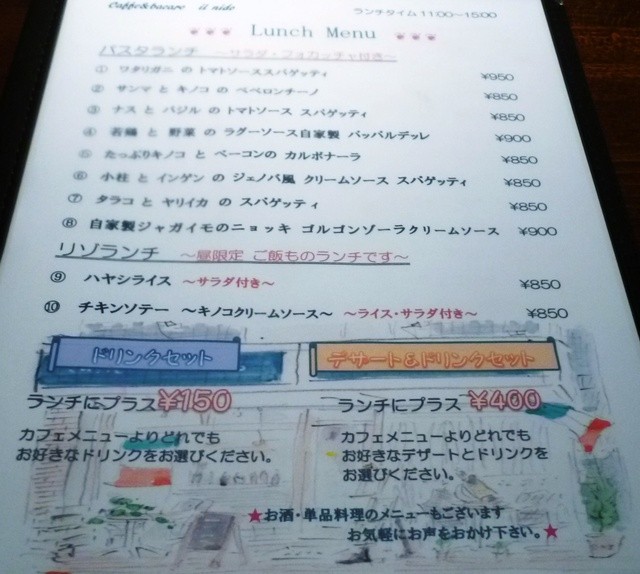 Caffe&bacaro il nido
ランチタイム 11:00～15:00
Lunch Menu
パスタランチ ～サラダ・フォカッチャ付き～
① ワタリガニ の トマトソーススパゲッティ ¥950
② サンマ と キノコ の ペペロンチーノ ¥850
③ ナス と バジル の トマトソース スパゲッティ ¥850
④ 若鶏 と 野菜 の ラグーソース自家製 パッパルデッレ ¥900
⑤ たっぷりキノコ と ベーコンの カルボナーラ ¥850
⑥ 小柱 と インゲン の ジェノバ風 クリームソース スパゲッティ ¥850
⑦ タラコ と ヤリイカ の スパゲティ ¥850
⑧ 自家製ジャガイモのニョッキ ゴルゴンゾーラクリームソース ¥900
リゾランチ ～昼限定 ご飯ものランチです～
⑨ ハヤシライス ～サラダ付き～ ¥850
⑩ チキンソテー ～キノコクリームソース～ ～ライス・サラダ付き～ ¥850
ドリンクセット
ランチにプラス ¥150
カフェメニューよりどれでも
お好きなドリンクをお選びください。
デザート&ドリンクセット
ランチにプラス ¥400
カフェメニューよりどれでも
お好きなデザートとドリンクを
お選びください。
★お酒・単品料理のメニューもございます
お気軽にお声をおかけ下さい。★